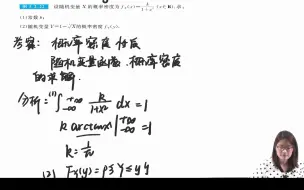 设随机变量 X 的概率密度为 f_X(x) = k/(1+x²) (x∈R), 求:
(1) 常数 k;
(2) 随机变量 Y=1-∛X 的概率密度 f_Y(y).
考察: 概率密度 性质
随机变量函数 概率密度
的求解
分析: (1) ∫_{-∞}^{+∞} k/(1+x²) dx = 1
k arctanx |_{-∞}^{+∞} = 1
k = 1/π
(2) F_Y(y) = P{Y ≤ y}